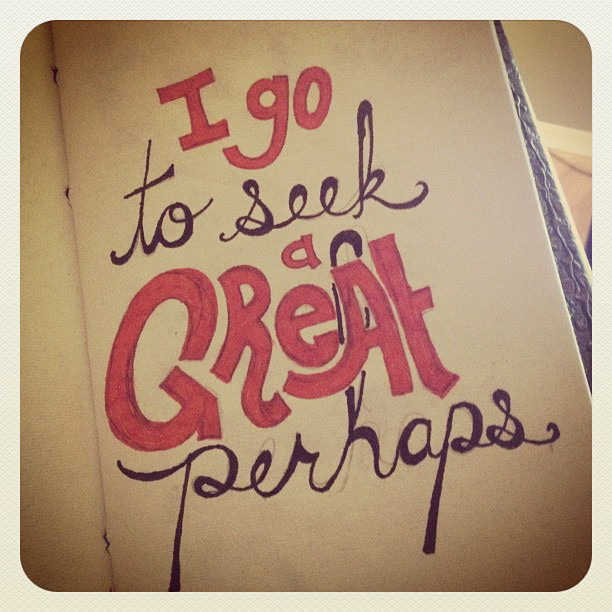 I go
to seek
a
GReAt
perhaps